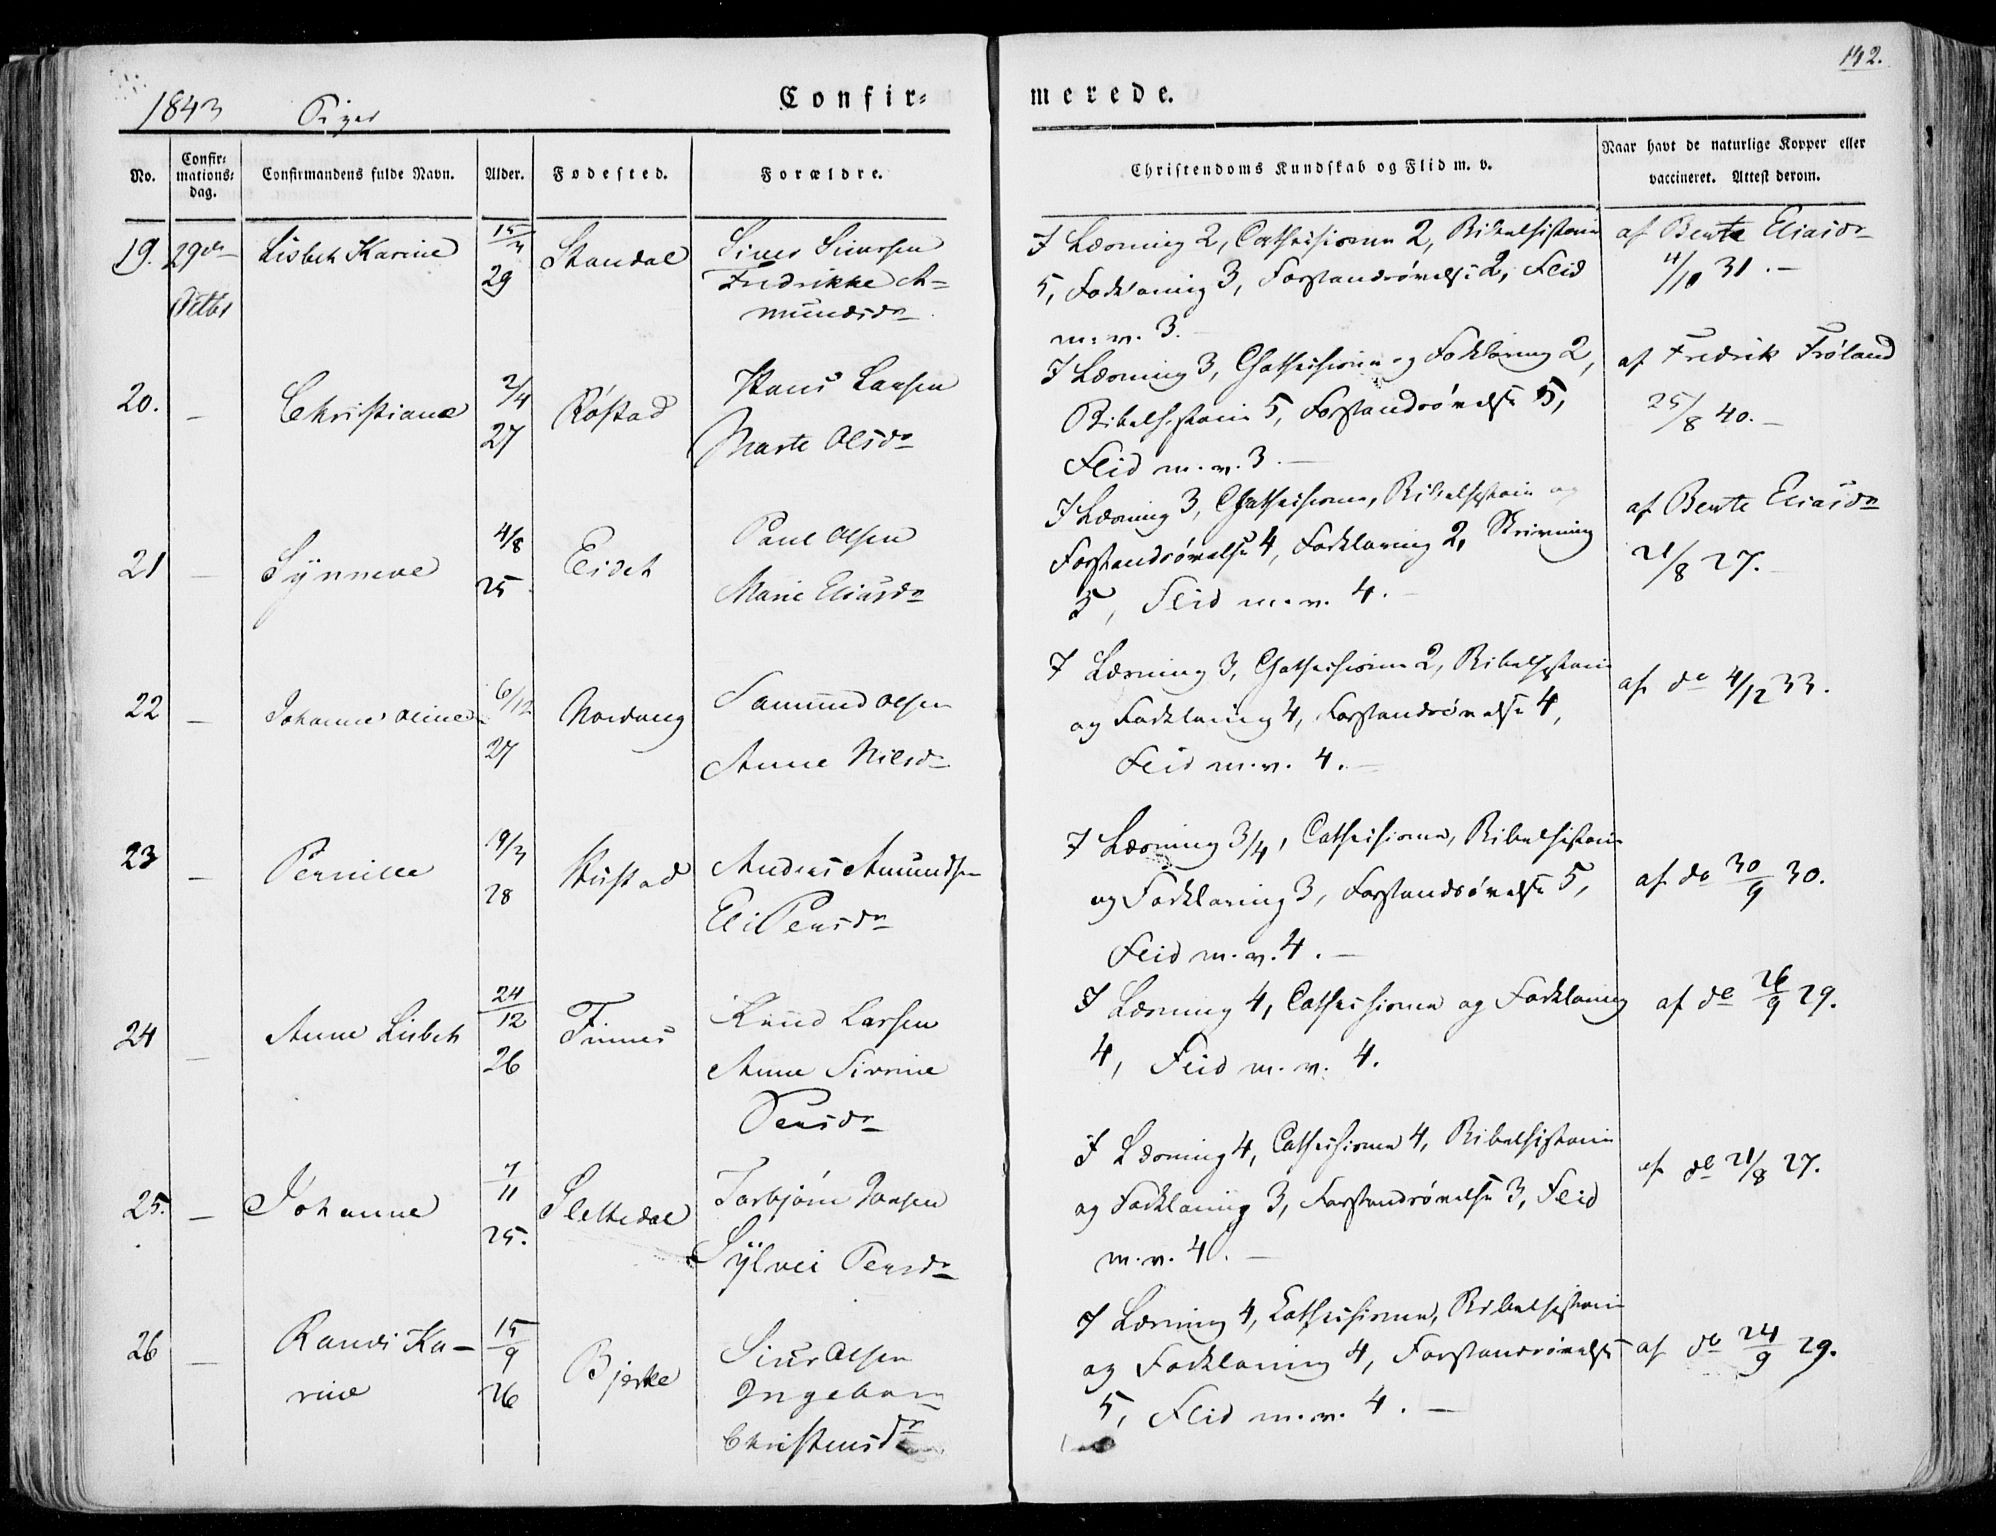 142.
1843 Piger Confir= merede.
No. Confir= mations= dag. Confirmandens fulde Navn. Alder. Fødested. Forældre. Christendoms Kundskab og Flid m. v. Naar havt de naturlige Kopper eller vaccineret. Attest derom.
19. 29de Octbr Lisbeth Karine 29 Standal Siver Siversen
Fredrikke A=
mundsdr
I Læsning 2, Cathechismen 2, Bibelhistorie
5, Forklaring 3, Forstandsøvelse 2, Flid
m. v. 3.
af Bente Eliasdr
4/10 31. –
20. – Christiane 2/4 27 Røstad Hans Larsen
Marte Olsdr
I Læsning 3, Chathechismen og Forklaring 2,
Bibelhistorie 5, Forstandsøvelse 5,
Flid m. v. 3. –
af Fredrik Frøland
25/8 40. –
21 – Synneve 4/8 25 Eidet Paul Olsen
Marie Eliasdr
I Læsning 3, Chathechismen, Bibelhistorie og
Forstandsøvelse 4, Forklaring 2, Skrivning
5, Flid m. v. 4. –
af Bente Eliasdr
21/8 27.
22 – Johanne Oline 6/12 27 Nordvug Samund Olsen
Anne Nilsdr
I Læsning 3, Chathechismen 2, Bibelhistorie
og Forklaring 4, Forstandsøvelse 4,
Flid m. v. 4. –
af do 4/12 33.
23 – Pernille 19/3 28 Hustad Andreas Amundsen
Eli Persdr
I Læsning 3/4, Cathechismen, Bibelhistorie
og Forklaring 3, Forstandsøvelse 5,
Flid m. v. 4. –
af do 30/9 30.
24 – Anne Lisbeth 24/12 26 Finnes Knud Larsen
Anne Sirine
Persdr
I Læsning 4, Cathechismen og Forklaring
4, Flid m. v. 4.
af do 26/9 29.
25. – Johanne 7/11 25. Slettedal Torbjørn Jonsen
Sylvei Persdr
I Læsning 4, Cathechismen 4, Bibelhistorie
og Forklaring 3, Forstandsøvelse 3, Flid
m. v. 4. –
af do 21/8 27.
26 – Randi Ka–
rine 15/9 26 Bjerke Siur Olsen
Ingebor
Christensdr
I Læsning 4, Cathechismen, Bibelhistorie
og Forklaring 4, Forstandsøvelse
5, Flid m. v. 4. –
af do 24/9 29.